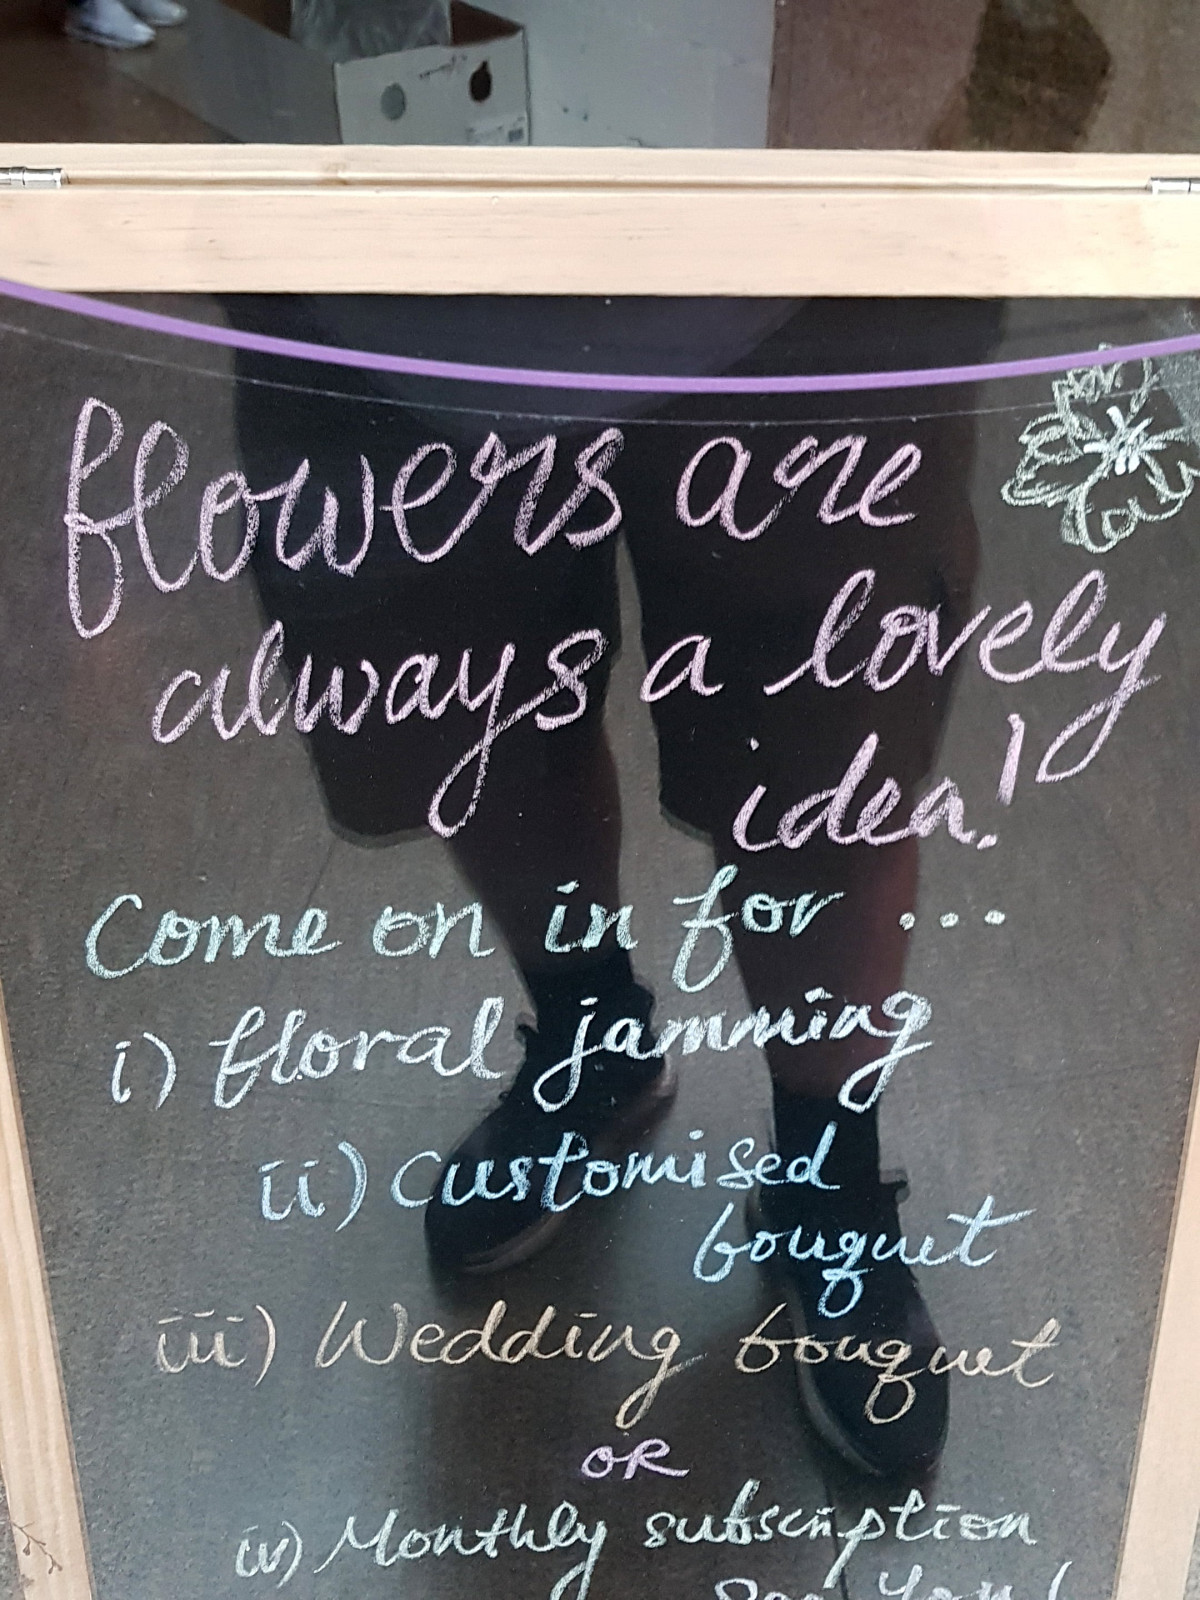 flowers are
always a lovely
idea!
Come on in for ...
i) floral jamming
ii) Customised
bouquet
iii) Wedding bouquet
OR
iv) Monthly subscription
see you!